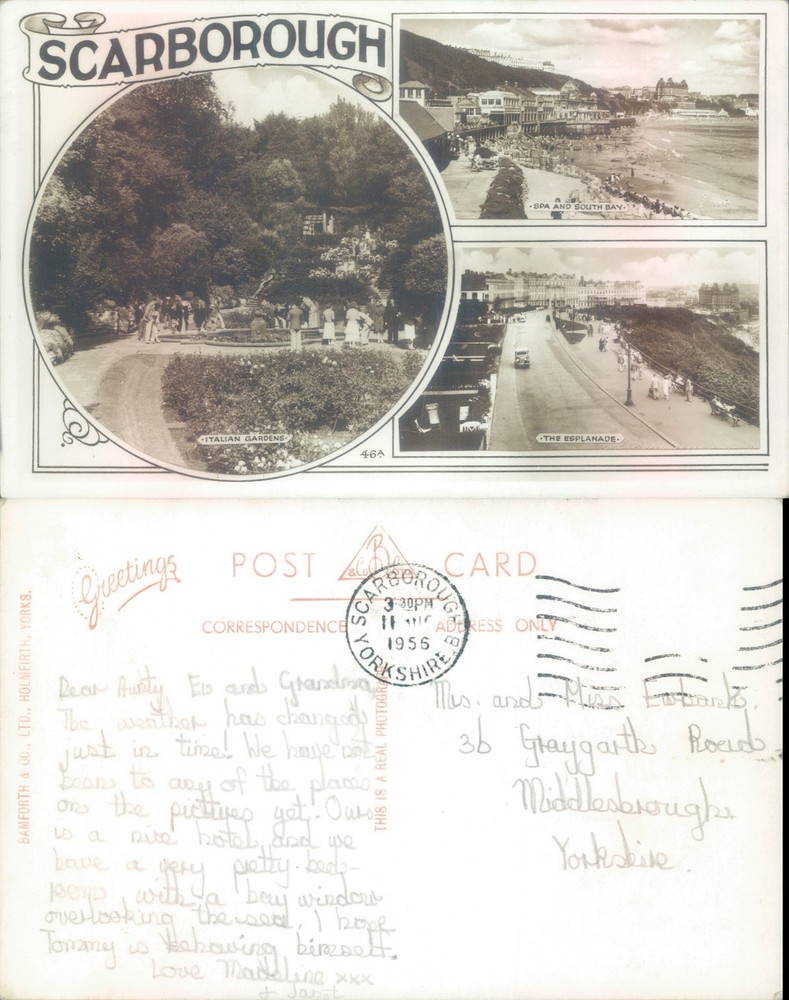 SCARBOROUGH
·SPA AND SOUTH BAY·
·ITALIAN GARDENS·
46A
·THE ESPLANADE·
Greetings
POST CARD
B
CORRESPONDENCE
ADDRESS ONLY
SCARBOROUGH
3 30PM
11
1956
YORKSHIRE
BAMFORTH & CO., LTD., HOLMFIRTH, YORKS.
THIS IS A REAL PHOTOGRAPH
Dear Aunty Ev and Grandma
The weather has changed
just in time! We have not
been to any of the places
on the pictures yet. Ours
is a nice hotel and we
have a very pretty bed-
room with a bay window
overlooking the sea. I hope
Tommy is behaving himself.
Love Madeline xxx
+ Janet
Mrs. and Miss Ewbank,
36 Graygarth Road
Middlesbrough,
Yorkshire.